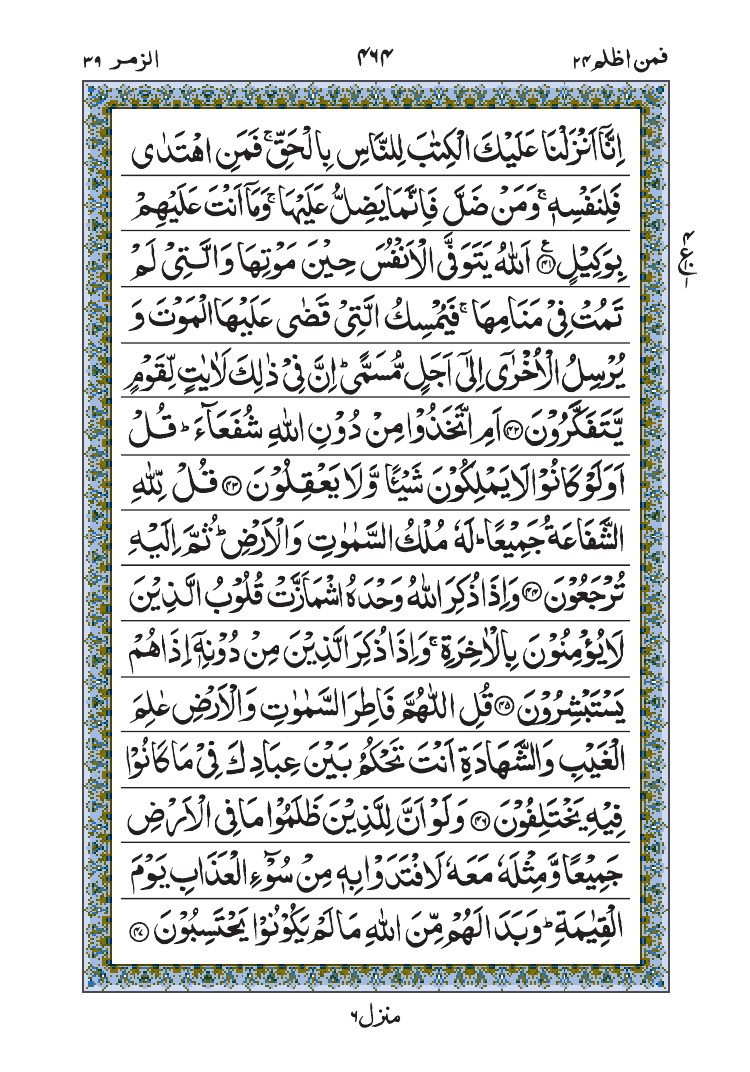 فمن اظلم ۲۴ ۴۶۴ الزمر ۳۹
اِنَّاۤ اَنْزَلْنَا عَلَیْكَ الْكِتٰبَ لِلنَّاسِ بِالْحَقِّ ۚ فَمَنِ اهْتَدٰی
فَلِنَفْسِهٖ ۚ وَمَنْ ضَلَّ فَاِنَّمَا یَضِلُّ عَلَیْهَا ۚ وَمَاۤ اَنْتَ عَلَیْهِمْ
بِوَكِیْلٍ ﴿۴۱﴾ ع اَللّٰهُ یَتَوَفَّی الْاَنْفُسَ حِیْنَ مَوْتِهَا وَالَّتِیْ لَمْ
تَمُتْ فِیْ مَنَامِهَا ۚ فَیُمْسِكُ الَّتِیْ قَضٰی عَلَیْهَا الْمَوْتَ وَ
یُرْسِلُ الْاُخْرٰۤی اِلٰۤی اَجَلٍ مُّسَمًّی ؕ اِنَّ فِیْ ذٰلِكَ لَاٰیٰتٍ لِّقَوْمٍ
یَّتَفَكَّرُوْنَ ﴿۴۲﴾ اَمِ اتَّخَذُوْا مِنْ دُوْنِ اللّٰهِ شُفَعَآءَ ؕ قُلْ
اَوَلَوْ كَانُوْا لَا یَمْلِكُوْنَ شَیْـًٔا وَّلَا یَعْقِلُوْنَ ﴿۴۳﴾ قُلْ لِّلّٰهِ
الشَّفَاعَةُ جَمِیْعًا ؕ لَهٗ مُلْكُ السَّمٰوٰتِ وَالْاَرْضِ ؕ ثُمَّ اِلَیْهِ
تُرْجَعُوْنَ ﴿۴۴﴾ وَاِذَا ذُكِرَ اللّٰهُ وَحْدَهُ اشْمَاَزَّتْ قُلُوْبُ الَّذِیْنَ
لَا یُؤْمِنُوْنَ بِالْاٰخِرَةِ ۚ وَاِذَا ذُكِرَ الَّذِیْنَ مِنْ دُوْنِهٖۤ اِذَا هُمْ
یَسْتَبْشِرُوْنَ ﴿۴۵﴾ قُلِ اللّٰهُمَّ فَاطِرَ السَّمٰوٰتِ وَالْاَرْضِ عٰلِمَ
الْغَیْبِ وَالشَّهَادَةِ اَنْتَ تَحْكُمُ بَیْنَ عِبَادِكَ فِیْ مَا كَانُوْا
فِیْهِ یَخْتَلِفُوْنَ ﴿۴۶﴾ وَلَوْ اَنَّ لِلَّذِیْنَ ظَلَمُوْا مَا فِی الْاَرْضِ
جَمِیْعًا وَّمِثْلَهٗ مَعَهٗ لَافْتَدَوْا بِهٖ مِنْ سُوْٓءِ الْعَذَابِ یَوْمَ
الْقِیٰمَةِ ؕ وَبَدَا لَهُمْ مِّنَ اللّٰهِ مَا لَمْ یَكُوْنُوْا یَحْتَسِبُوْنَ ﴿۴۷﴾
۴
ع
۱
منزل ۶